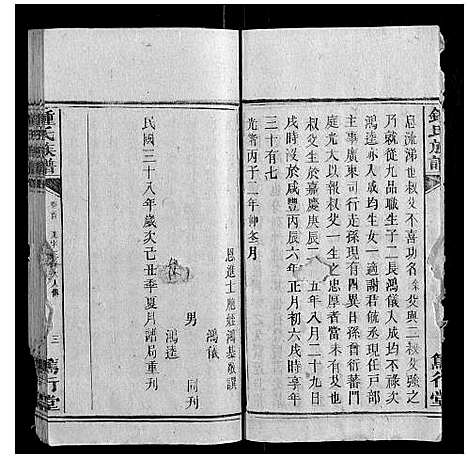 鍾氏族譜
篤行堂
息流涕也叔父不喜功名 叔父強之
乃就從九品職生子二長鴻儀入成均不祿次
鴻逵亦入成均生女一適謝君毓丞現任戶部
主事廣東司行走孫現有四異日孫曾衍蕃門
庭光大以報叔父一生之忠厚者當未有艾也
叔父生於嘉慶庚辰 五年八月二十九日
戌時沒於咸豐丙辰六年正月初六戌時享年
三十有七
光緒丙子二年仲冬月
恩進士 鴻基敬譔
鴻儀
男 同刊
鴻逵
民國三十八年歲次己丑季夏月譜局重刊
鍾氏族譜
三
篤行堂